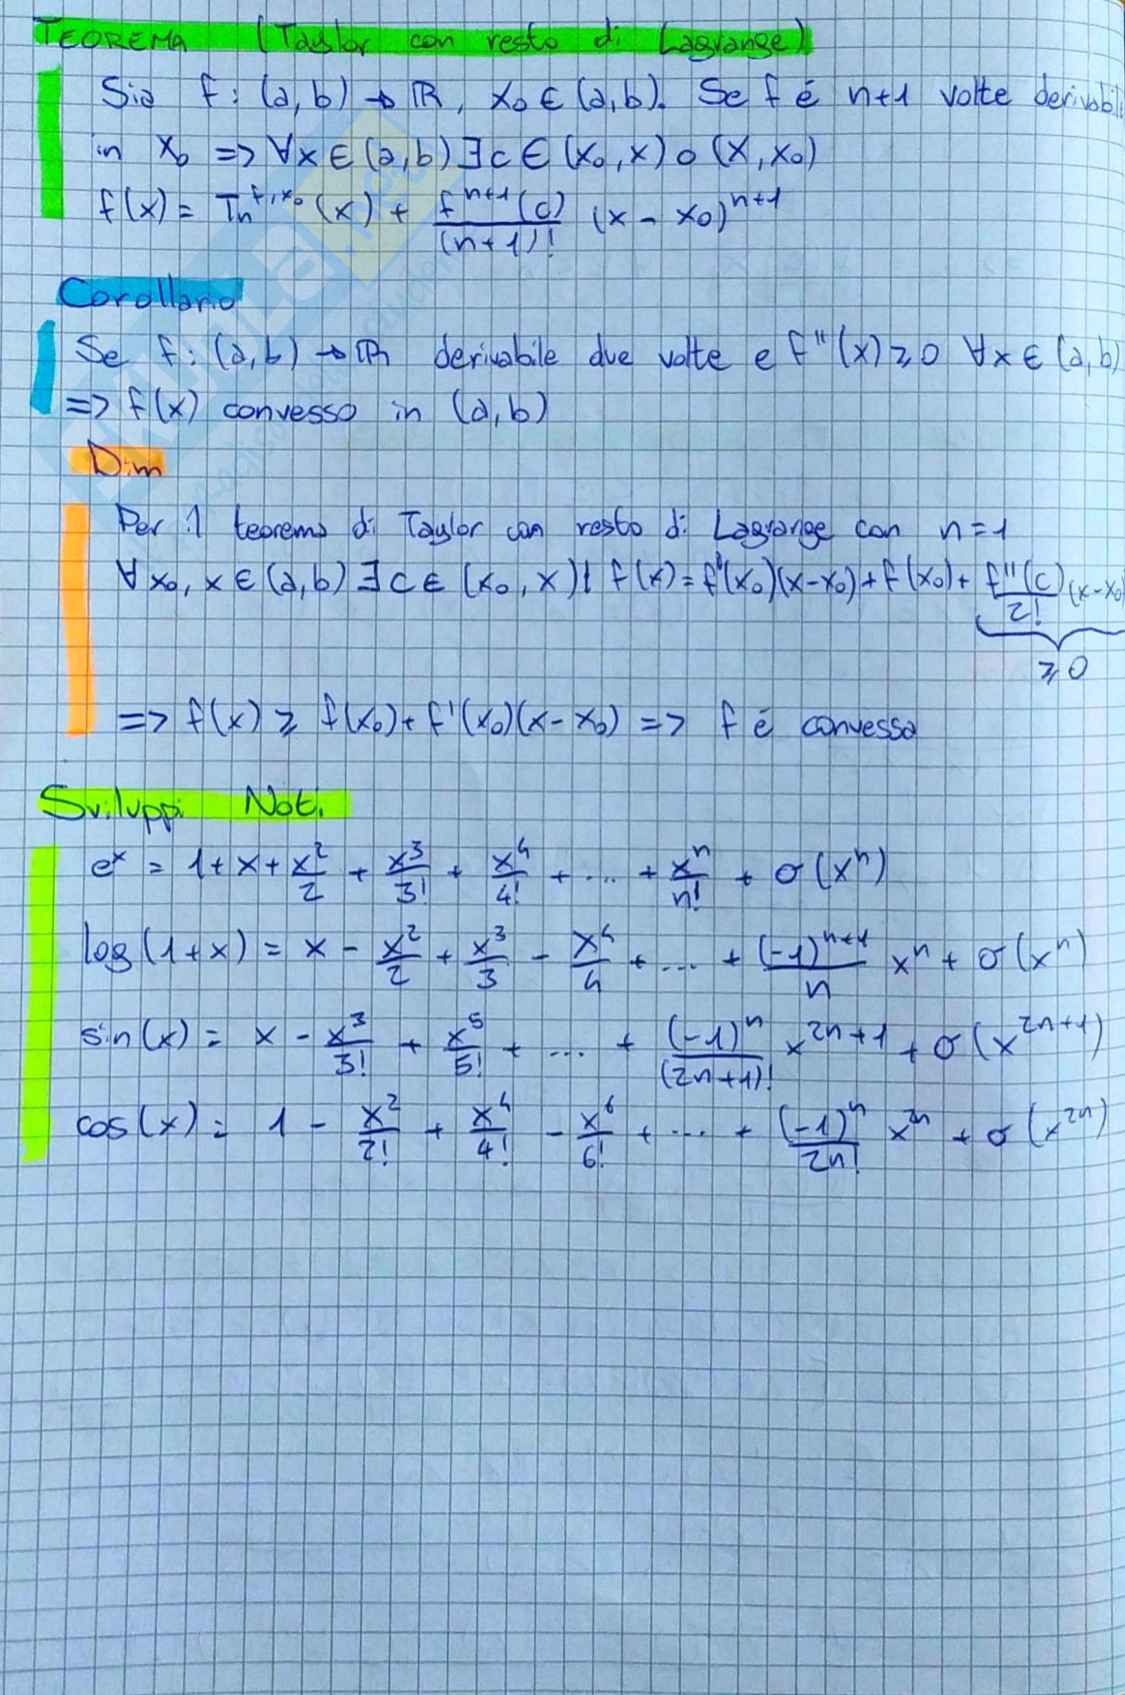 TEOREMA (Taylor con resto di Lagrange)
Sia f: (a,b) → ℝ, x₀ ∈ (a,b). Se f é n+1 volte derivabil
in x₀ => ∀x ∈ (a,b) ∃c ∈ (x₀,x) o (x,x₀)
f(x) = Tn^{f,x₀}(x) + f^{n+1}(c)/(n+1)! (x - x₀)^{n+1}
Corollario
Se f: (a,b) → ℝ derivabile due volte e f''(x) ≥ 0 ∀x ∈ (a,b)
=> f(x) convesso in (a,b)
Dim
Per il teorema di Taylor con resto di Lagrange con n=1
∀x₀, x ∈ (a,b) ∃c ∈ (x₀,x) | f(x) = f'(x₀)(x-x₀) + f(x₀) + f''(c)/2! (x-x₀)
≥ 0
=> f(x) ≥ f(x₀) + f'(x₀)(x-x₀) => f é convessa
Sviluppi Noti
e^x = 1 + x + x²/2 + x³/3! + x⁴/4! + ... + x^n/n! + o(x^n)
log(1+x) = x - x²/2 + x³/3 - x⁴/4 + ... + (-1)^{n+1}/n x^n + o(x^n)
sin(x) = x - x³/3! + x⁵/5! + ... + (-1)^n/(2n+1)! x^{2n+1} + o(x^{2n+1})
cos(x) = 1 - x²/2! + x⁴/4! - x⁶/6! + ... + (-1)^n/2n! x^{2n} + o(x^{2n})